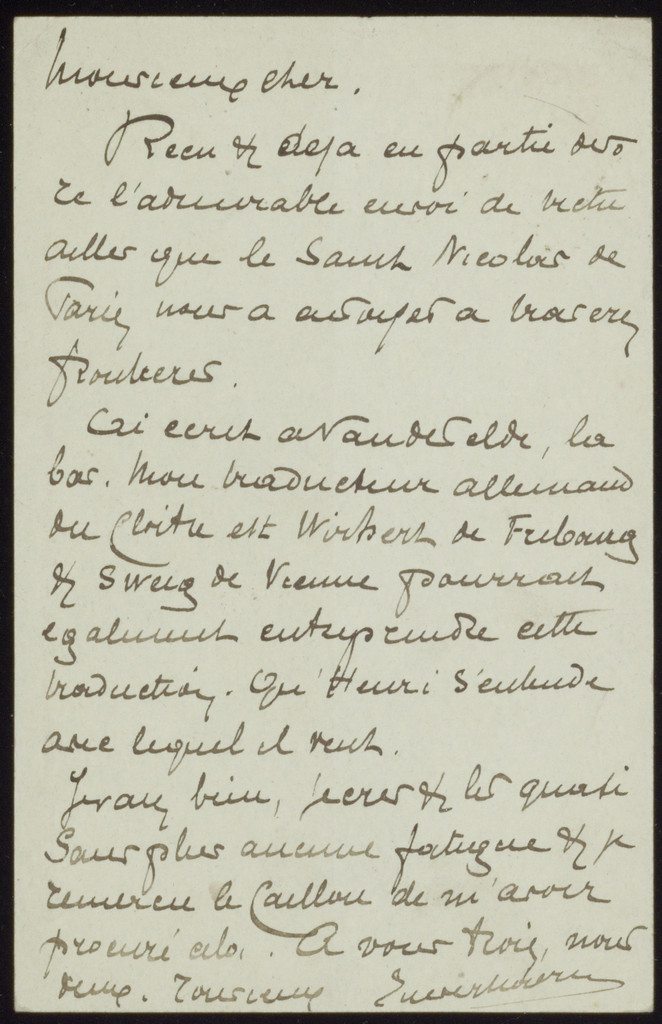 Monsieur cher.
Recu & déja en partie dévo
ré l'admirable envoi de victu
ailles que le Saint Nicolas de
Paris nous a envoyés a travers
frontieres.
J'ai ecrit a Vandervelde, la
bas. Mon traducteur allemand
du Cloître est Wickert de Fribourg
& Sweig de Vienne pourrait
egalement entreprendre cette
traduction. Que Henri s'entende
avec lequel il veut.
Je vais bien, j'ecris & lis quasi
sans plus aucune fatigue & je
remercie le Caillou de m'avoir
procuré cela. A vous trois, nous
deux.